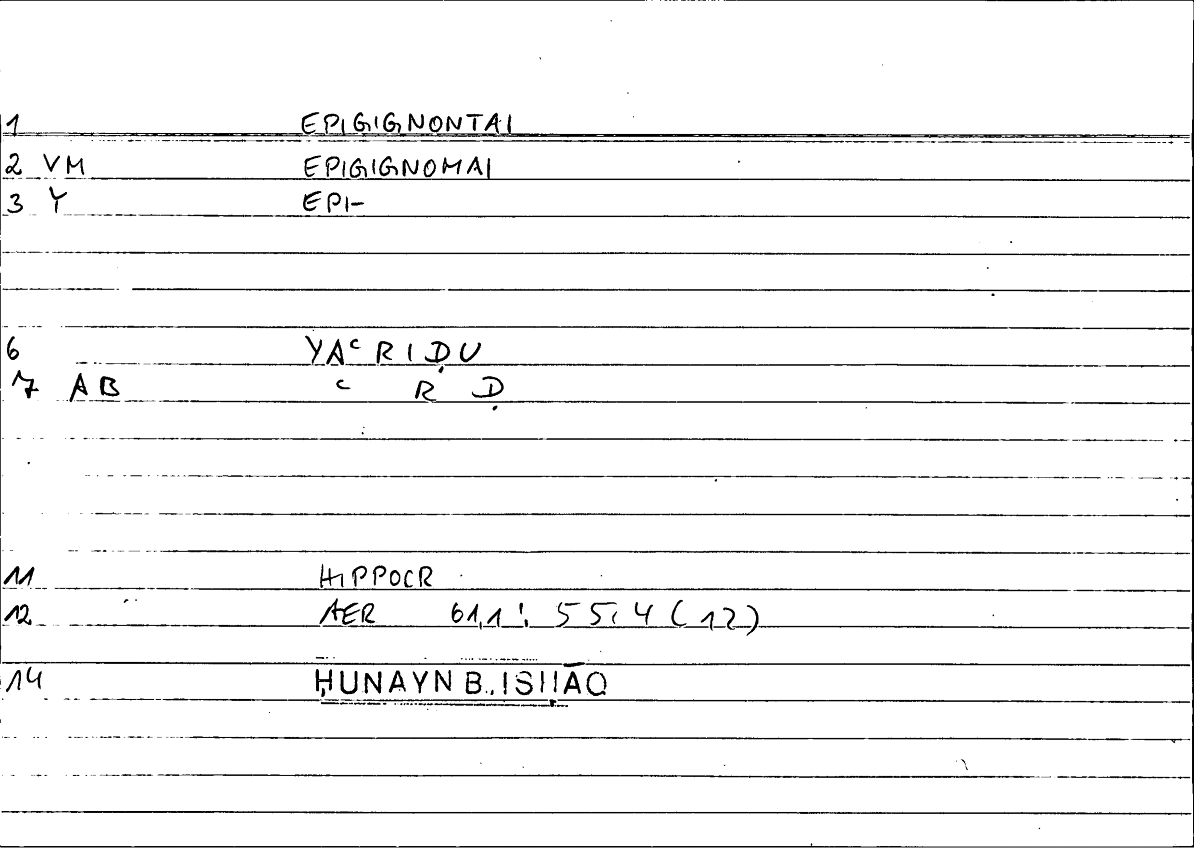 1 EPIGIGNONTAI
2 VM EPIGIGNOMAI
3 Y EPI-
6 YAʿRIḌU
7 AB ʿ R Ḍ
11 HIPPOCR
12 AER 61,1: 55,4 (12)
14 ḤUNAYN B. ISḤĀQ